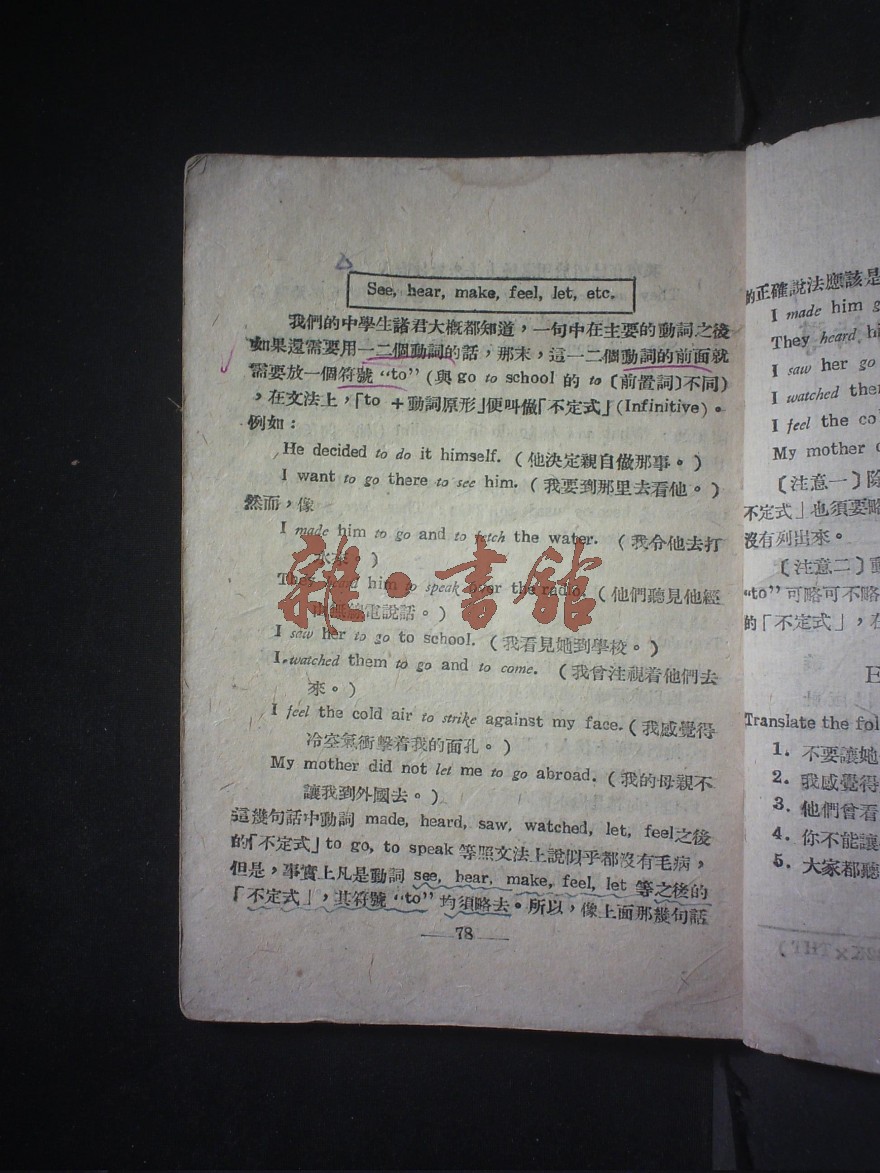 See, hear, make, feel, let, etc.
我們的中學生諸君大概都知道，一句中在主要的動詞之後
如果還需要用一二個動詞的話，那末，這一二個動詞的前面就
需要放一個符號 "to" (與 go to school 的 to〔前置詞〕不同)
，在文法上，「to +動詞原形」便叫做「不定式」(Infinitive)。
例如：
He decided to do it himself. (他決定親自做那事。)
I want to go there to see him. (我要到那里去看他。)
然而，像
I made him to go and to fetch the water. (我令他去打
水來。)
They heard him to speak over the radio. (他們聽見他經
由無線電說話。)
I saw her to go to school. (我看見她到學校。)
I watched them to go and to come. (我曾注視着他們去
來。)
I feel the cold air to strike against my face. (我感覺得
冷空氣衝擊着我的面孔。)
My mother did not let me to go abroad. (我的母親不
讓我到外國去。)
這幾句話中動詞 made, heard, saw, watched, let, feel之後
的「不定式」to go, to speak 等照文法上說似乎都沒有毛病，
但是，事實上凡是動詞 see, hear, make, feel, let 等之後的
「不定式」，其符號 "to" 均須略去。所以，像上面那幾句話
78
雜·書館
的正確說法應該是
I made him g
They heard hi
I saw her go
I watched the
I feel the co
My mother
〔注意一〕除
不定式」也須要略
沒有列出來。
〔注意二〕動
"to" 可略可不略
的「不定式」，在
E
Translate the fol
1. 不要讓她
2. 我感覺得
3. 他們曾看
4. 你不能讓
5. 大家都聽